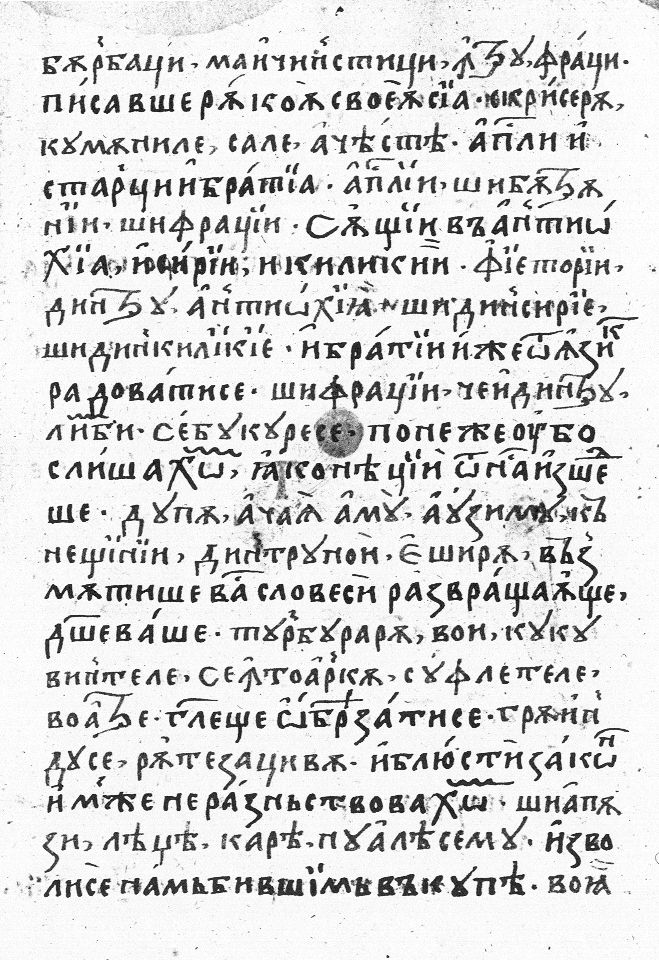 бѫрбаци, маи чинстици, лꙋ фраци·
писавше рѫкоѫ своеѫ сїа· юкрисерѫ,
кꙋмѫниле, сале, ачѣстѣ· апⷭли и
старци и братїа· апⷭлїи, шибѫтрѫ
нїи, шифрацїи· сѫщїи въ антиѡ
хїа, и сирїи, и киликии· фїеторїи,
дин антиѡхїѧ шидинсирїе,
шидинкиликїе· и братїи иже ѿ ѫзик
радоватисе· шифрацїи, чеидин
либи· се бꙋкꙋресе· понеже оубо
слишахѡ, ꙗко нѣцїи ѿ наⷭ изшеⷣ
ше· дꙋпѫ, ачаѧ амꙋ аꙋзимꙋ, къ
нещїнїи, динтрꙋнои, еширѫ, въз
мѫтише ваⷭ словеси развращаѫще,
дш҃е ваше· тꙋрбꙋрарѫ, вои, кꙋкꙋ
винтеле, се ѫтоаркѫ, сꙋфлетеле,
воатре· гл҃еще ѡбрѣзатисе· грѫин
дꙋсе, рѫтезацивѫ· и блюсти закѡⁿ
имже не разньствовахѡ· шиапѫ
зи, лѣџѣ, карѣ, нꙋ алѣсемꙋ· изво
лисе намь бившїмь въ кꙋпѣ· воѧ